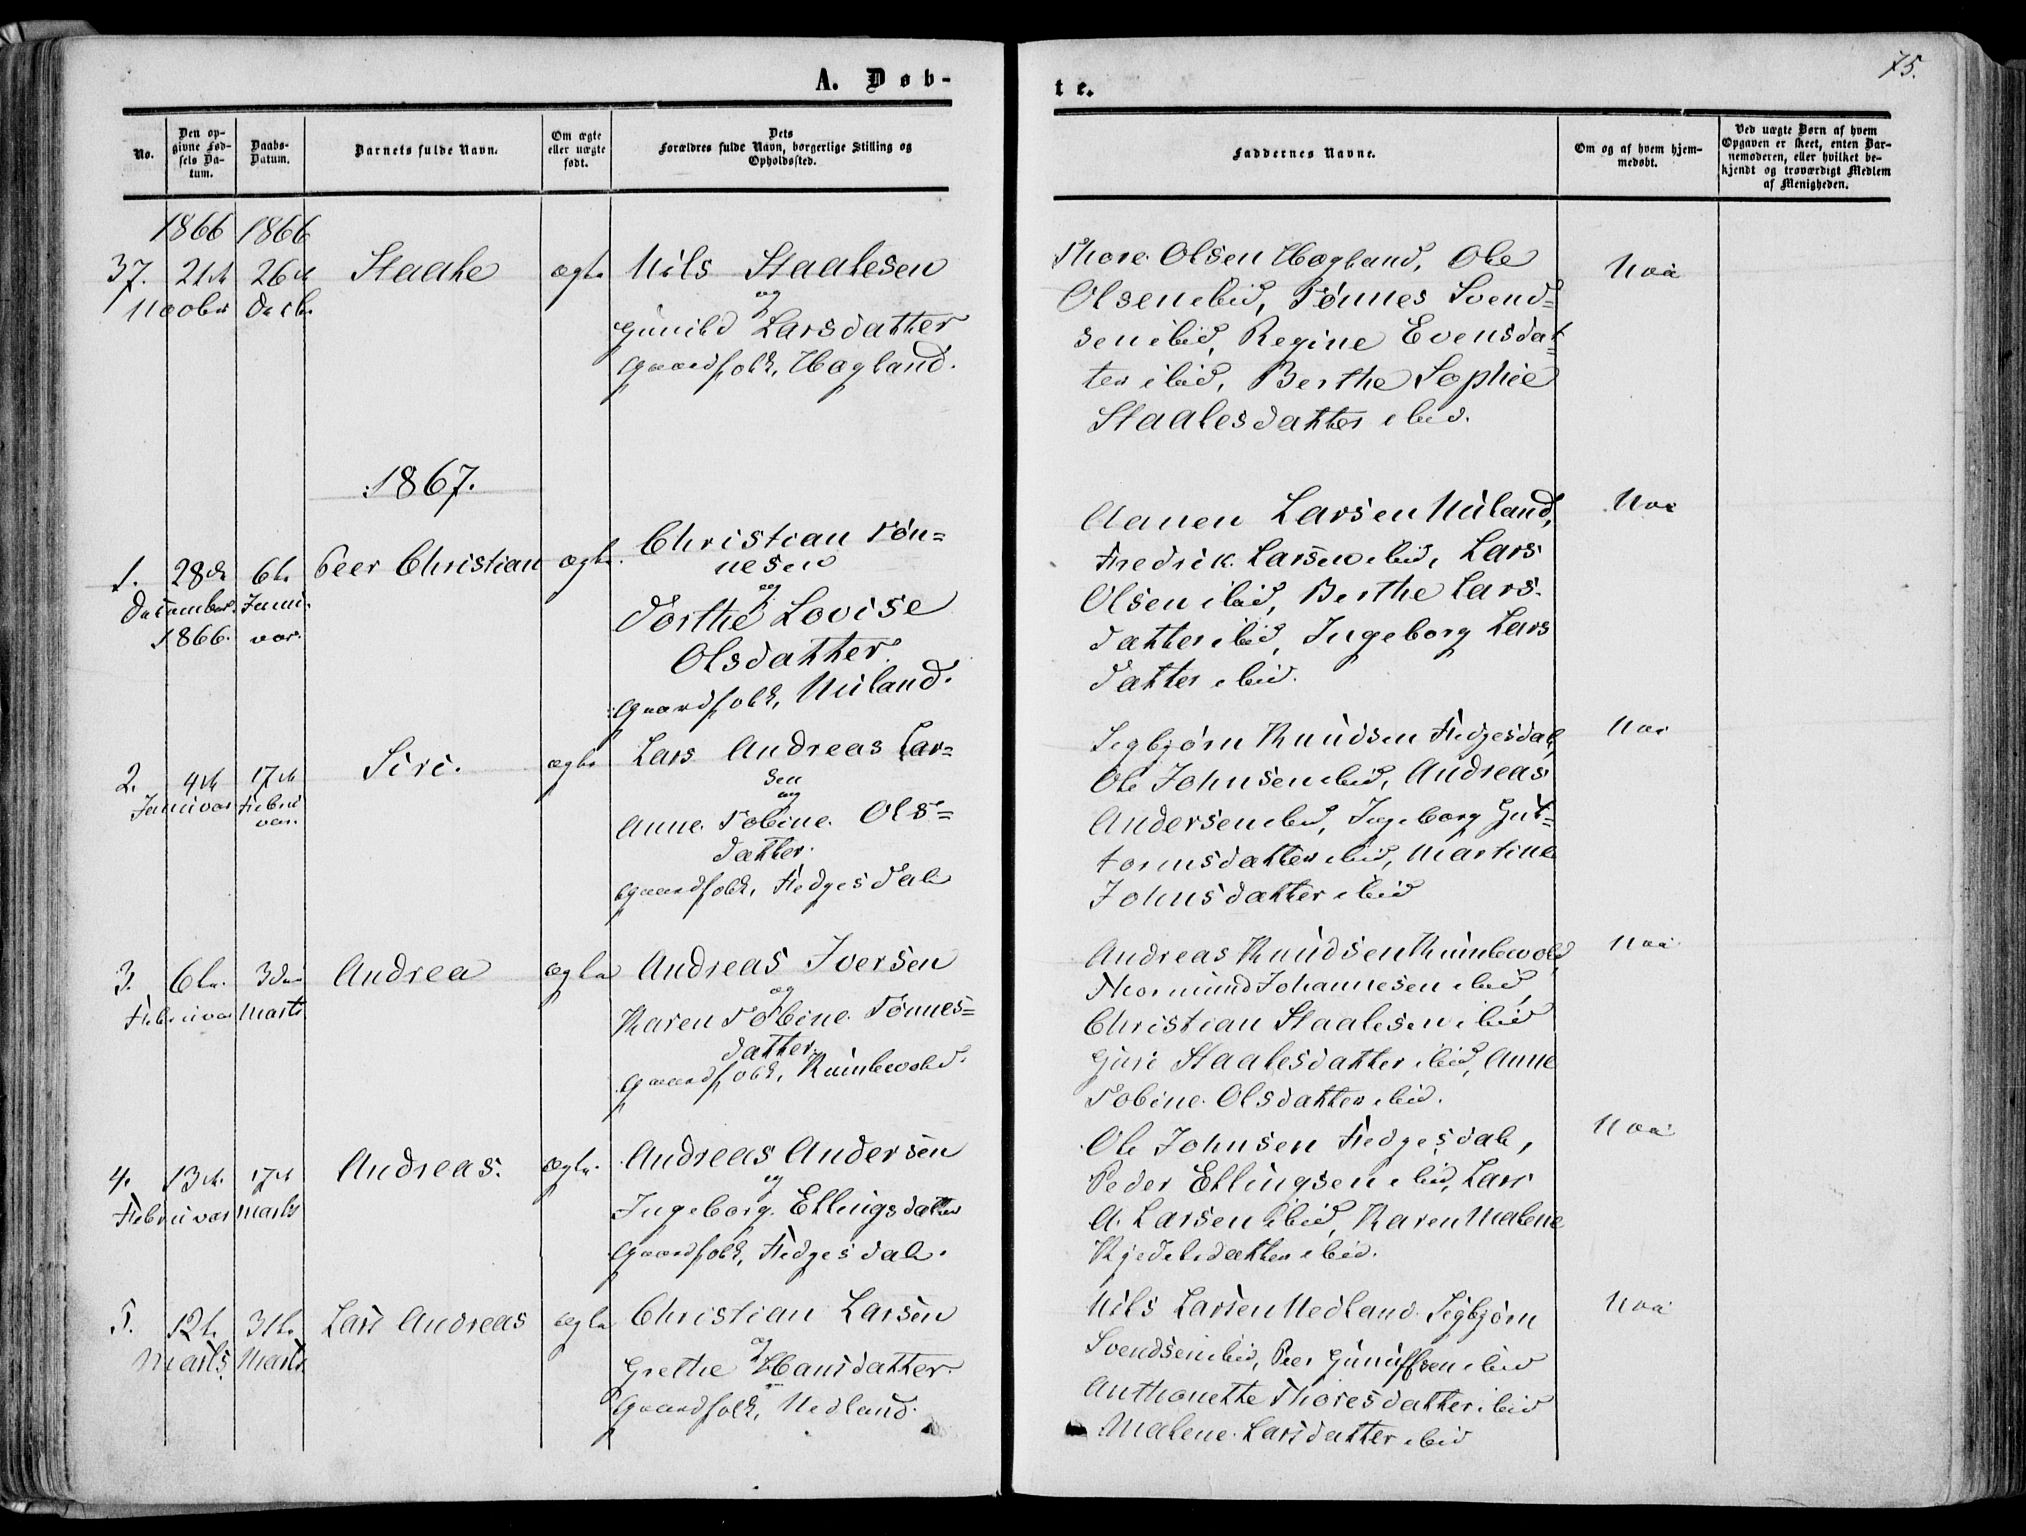 A. Døb-
No.
Den op-
givne Fød-
sels Da-
tum.
Daabs-
Datum.
Barnets fulde Navn.
Om ægte
eller uægte
født.
Dets
Forældres fulde Navn, borgerlige Stilling og
Opholdssted.
1866 1866
37. 21de 26de Staale ægte Nils Staalesen
Novbr Decbr og
Gunild Larsdatter
Gaardfolk, Hogland.
1867.
Christian Tøn=
1. 28de 6te Peer Christian ægte. nesen
December Janu- og
1866. var. Dorthe Lovise
Olsdatter.
Gaardfolk, Nuland.
2. 4de 17de Siri. ægte Lars Andreas Lar=
sen
Januvar Februvar. og
Anne Tobine Ols=
datter.
Gaardfolk, Fidjesdal
3. 6te 3die Andrea ægte Andreas Iversen
Februvar Marts og
Karen Tobine Tønnes=
datter.
Gaardfolk,
4. 13de 17de Andreas. ægte. Andreas Andersen
Februvar Marts og
Ingeborg Ellingsdatter
Gaardfolk, Fidjesdal.
5. 12te 31te Lars Andreas ægte Christian Larsen
Marts Marts og
Grethe Hansdatter
Gaardfolk, Nedland.
75.
te.
Faddernes Navne.
Om og af hvem hjem-
medøbt.
Ved uægte Børn af hvem
Opgaven er skeet, enten Bar-
nemoderen, eller hvilket be-
kjendt og troværdigt Medlem
af Menigheden.
Thore Olsen Hogland, Ole Nei
Olsen ibid, Tønnes Svend=
sen ibid, Regine Evensdat=
ter ibid, Berthe Sophie
Staalesdatter ibid.
Aanen Larsen Nuland, Nei
Fredrik Larsen ibid, Lars
Olsen ibid, Berthe Lars-
datter ibid, Ingeborg Lars
datter ibid.
Sigbjørn Knudsen Fidjesdal, Nei
Ole Johnsen ibid, Andreas
Andersen ibid, Ingeborg Gut=
tormsdatter ibid, Martine
Johnsdatter ibid
Andreas Knudsen Nei
Thormund Johannesen ibid,
Christian Staalesen ibid
Guri Staalesdatter ibid, Anne
Tobine Olsdatter ibid.
Ole Johnsen Fidjesdal, Nei
Peder Ellingsen ibid, Lars
A. Larsen ibid, Karen Malene
Kjedelsdatter ibid.
Nils Larsen Nedland. Sigbjørn Nei
Svendsen ibid, Peer Gunuffsen ibid
Anthonette Thoresdatter ibid
Malene Larsdatter ibid